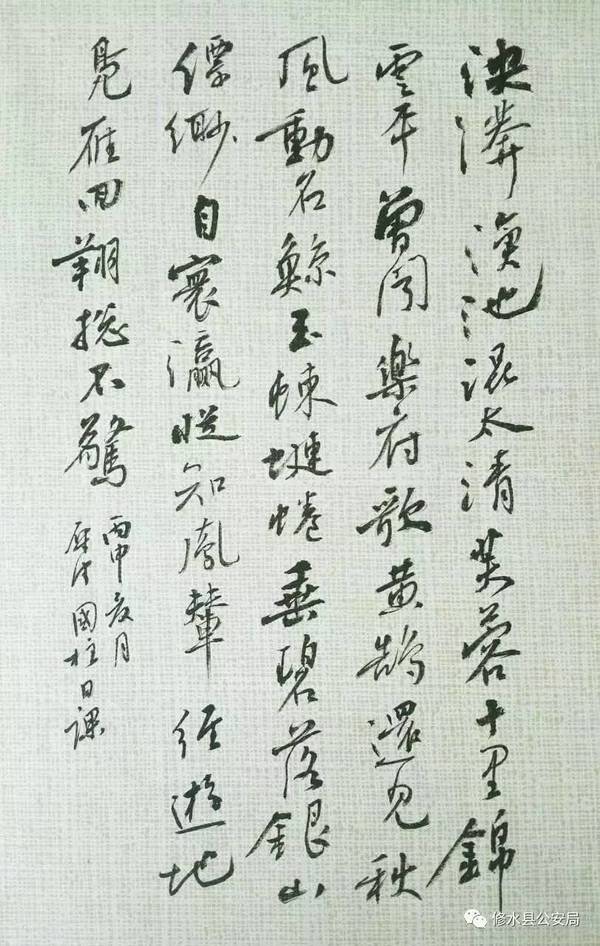 泱漭池混太清芙蓉十里錦
雲平曾聞樂府歌黃鵠還見秋
風動石鯨玉蝀䗴蜷垂碧落銀山
縹緲自寰瀛從知鳳輦經遊地
鳧雁回翔總不驚
丙申月
國柱日課
修水县公安局